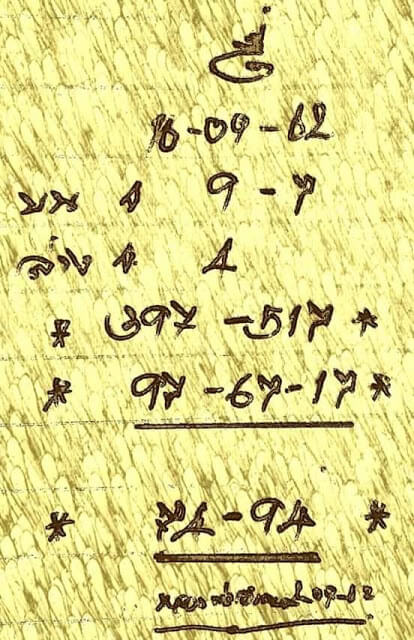 16-09-62
บน 1 9-7
ล่าง 1. 4
* 397 -517 *
* 97-67-17 *
* 74-94 *